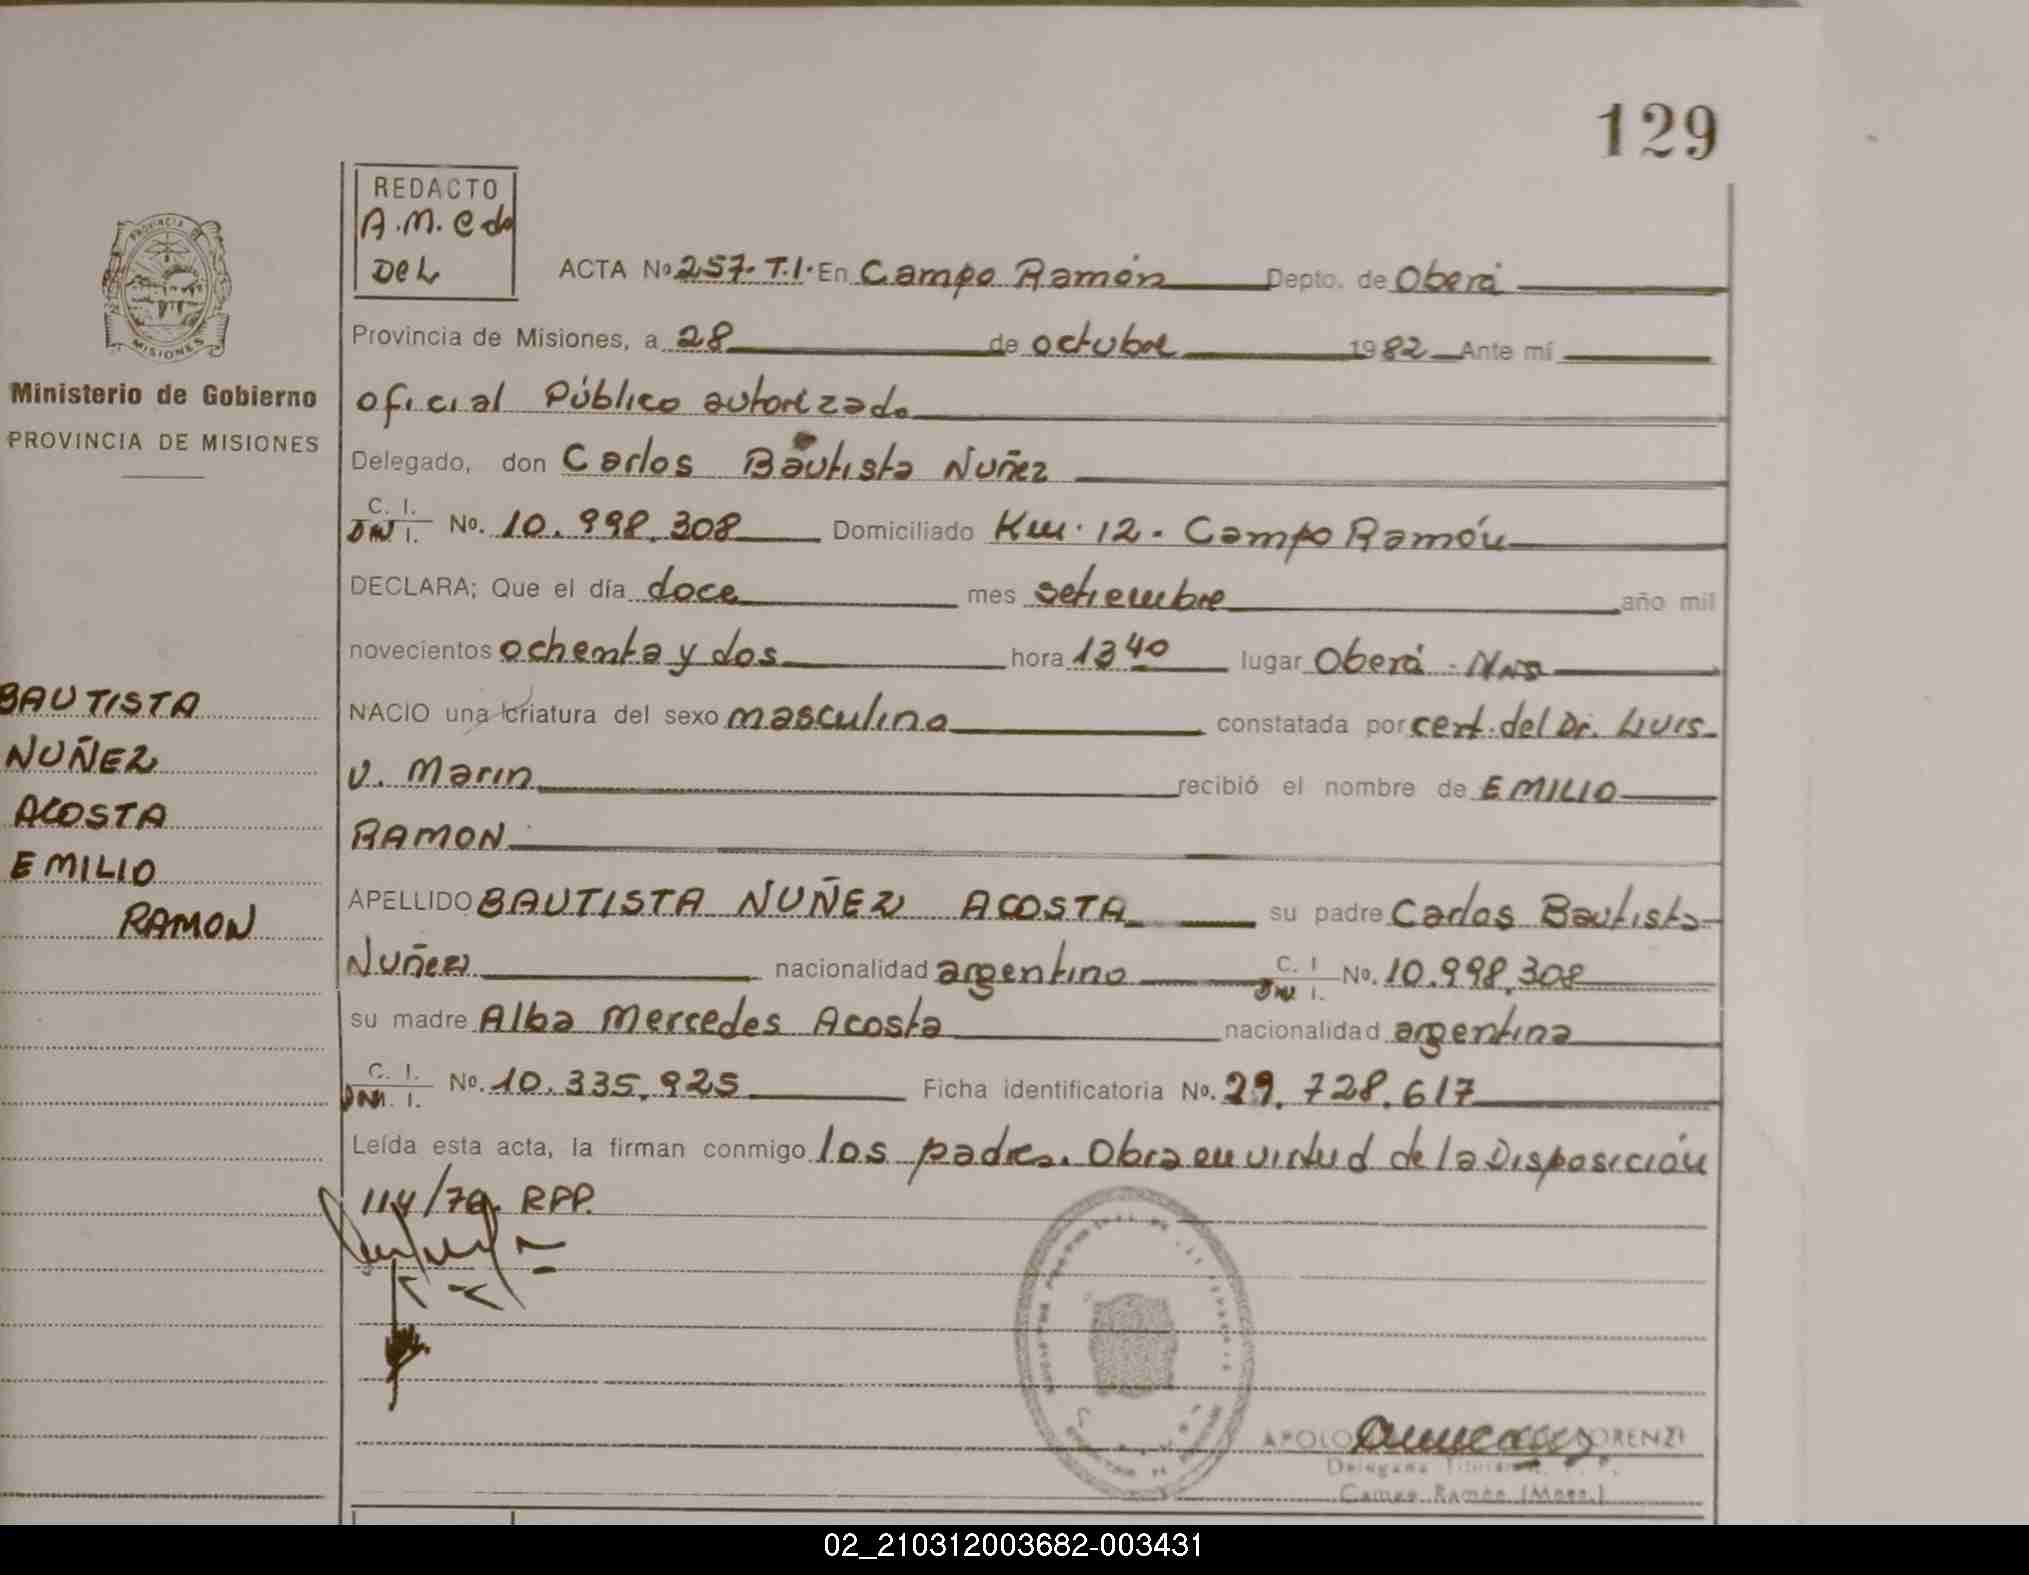 129
REDACTO
A.M.C de
DEL
PROVINCIA DE
MISIONES
Ministerio de Gobierno
PROVINCIA DE MISIONES
BAUTISTA
NUÑEZ
ACOSTA
EMILIO
RAMON
ACTA No 257. T.I. En Campo Ramón Depto. de Oberá
Provincia de Misiones, a 28 de octubre 1982 Ante mí
oficial Público autorizado
Delegado, don Carlos Bautista Nuñez
C. I. DNI I. No. 10.998.308 Domiciliado Km. 12 - Campo Ramón
DECLARA; Que el día doce mes setiembre año mil
novecientos ochenta y dos hora 13 40 lugar Oberá - Mns
NACIO una criatura del sexo masculino constatada por cert. del Dr. Luis
V. Marin recibió el nombre de EMILIO
RAMON
APELLIDO BAUTISTA NUÑEZ ACOSTA su padre Carlos Bautista
Nuñez nacionalidad argentino C. I DNI I. No. 10.998.308
su madre Alba Mercedes Acosta nacionalidad argentina
C. I. DNI. I. No. 10.335.925 Ficha identificatoria No. 29.728.617
Leída esta acta, la firman conmigo los padres. Obra en virtud de la Disposición
114/78. RPP.
APOLO LORENZI
Campo Ramón (Mnes.)
02_210312003682-003431